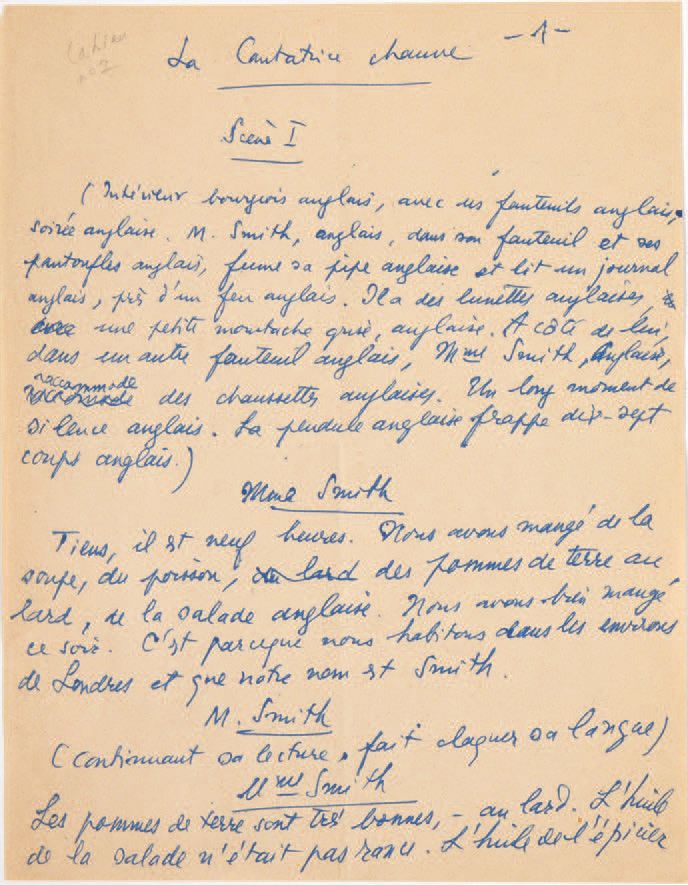 Cahier
no 2
La Cantatrice chauve - 1 -
Scène I
(Intérieur bourgeois anglais, avec des fauteuils anglais,
soirée anglaise. M. Smith, anglais, dans son fauteuil et ses
pantoufles anglais, fume sa pipe anglaise et lit un journal
anglais, près d'un feu anglais. Il a des lunettes anglaises,
une petite moustache grise, anglaise. A côté de lui,
dans un autre fauteuil anglais, Mme Smith, anglaise,
raccommode
des chaussettes anglaises. Un long moment de
silence anglais. La pendule anglaise frappe dix-sept
coups anglais.)
Mme Smith
Tiens, il est neuf heures. Nous avons mangé de la
soupe, du poisson, du lard des pommes de terre au
lard, de la salade anglaise. Nous avons bien mangé
ce soir. C'est parceque nous habitons dans les environs
de Londres et que notre nom est Smith.
M. Smith
(continuant sa lecture, fait claquer sa langue)
Mme Smith
Les pommes de terre sont très bonnes, - au lard. L'huile
de la salade n'était pas rance. L'huile de l'épicier